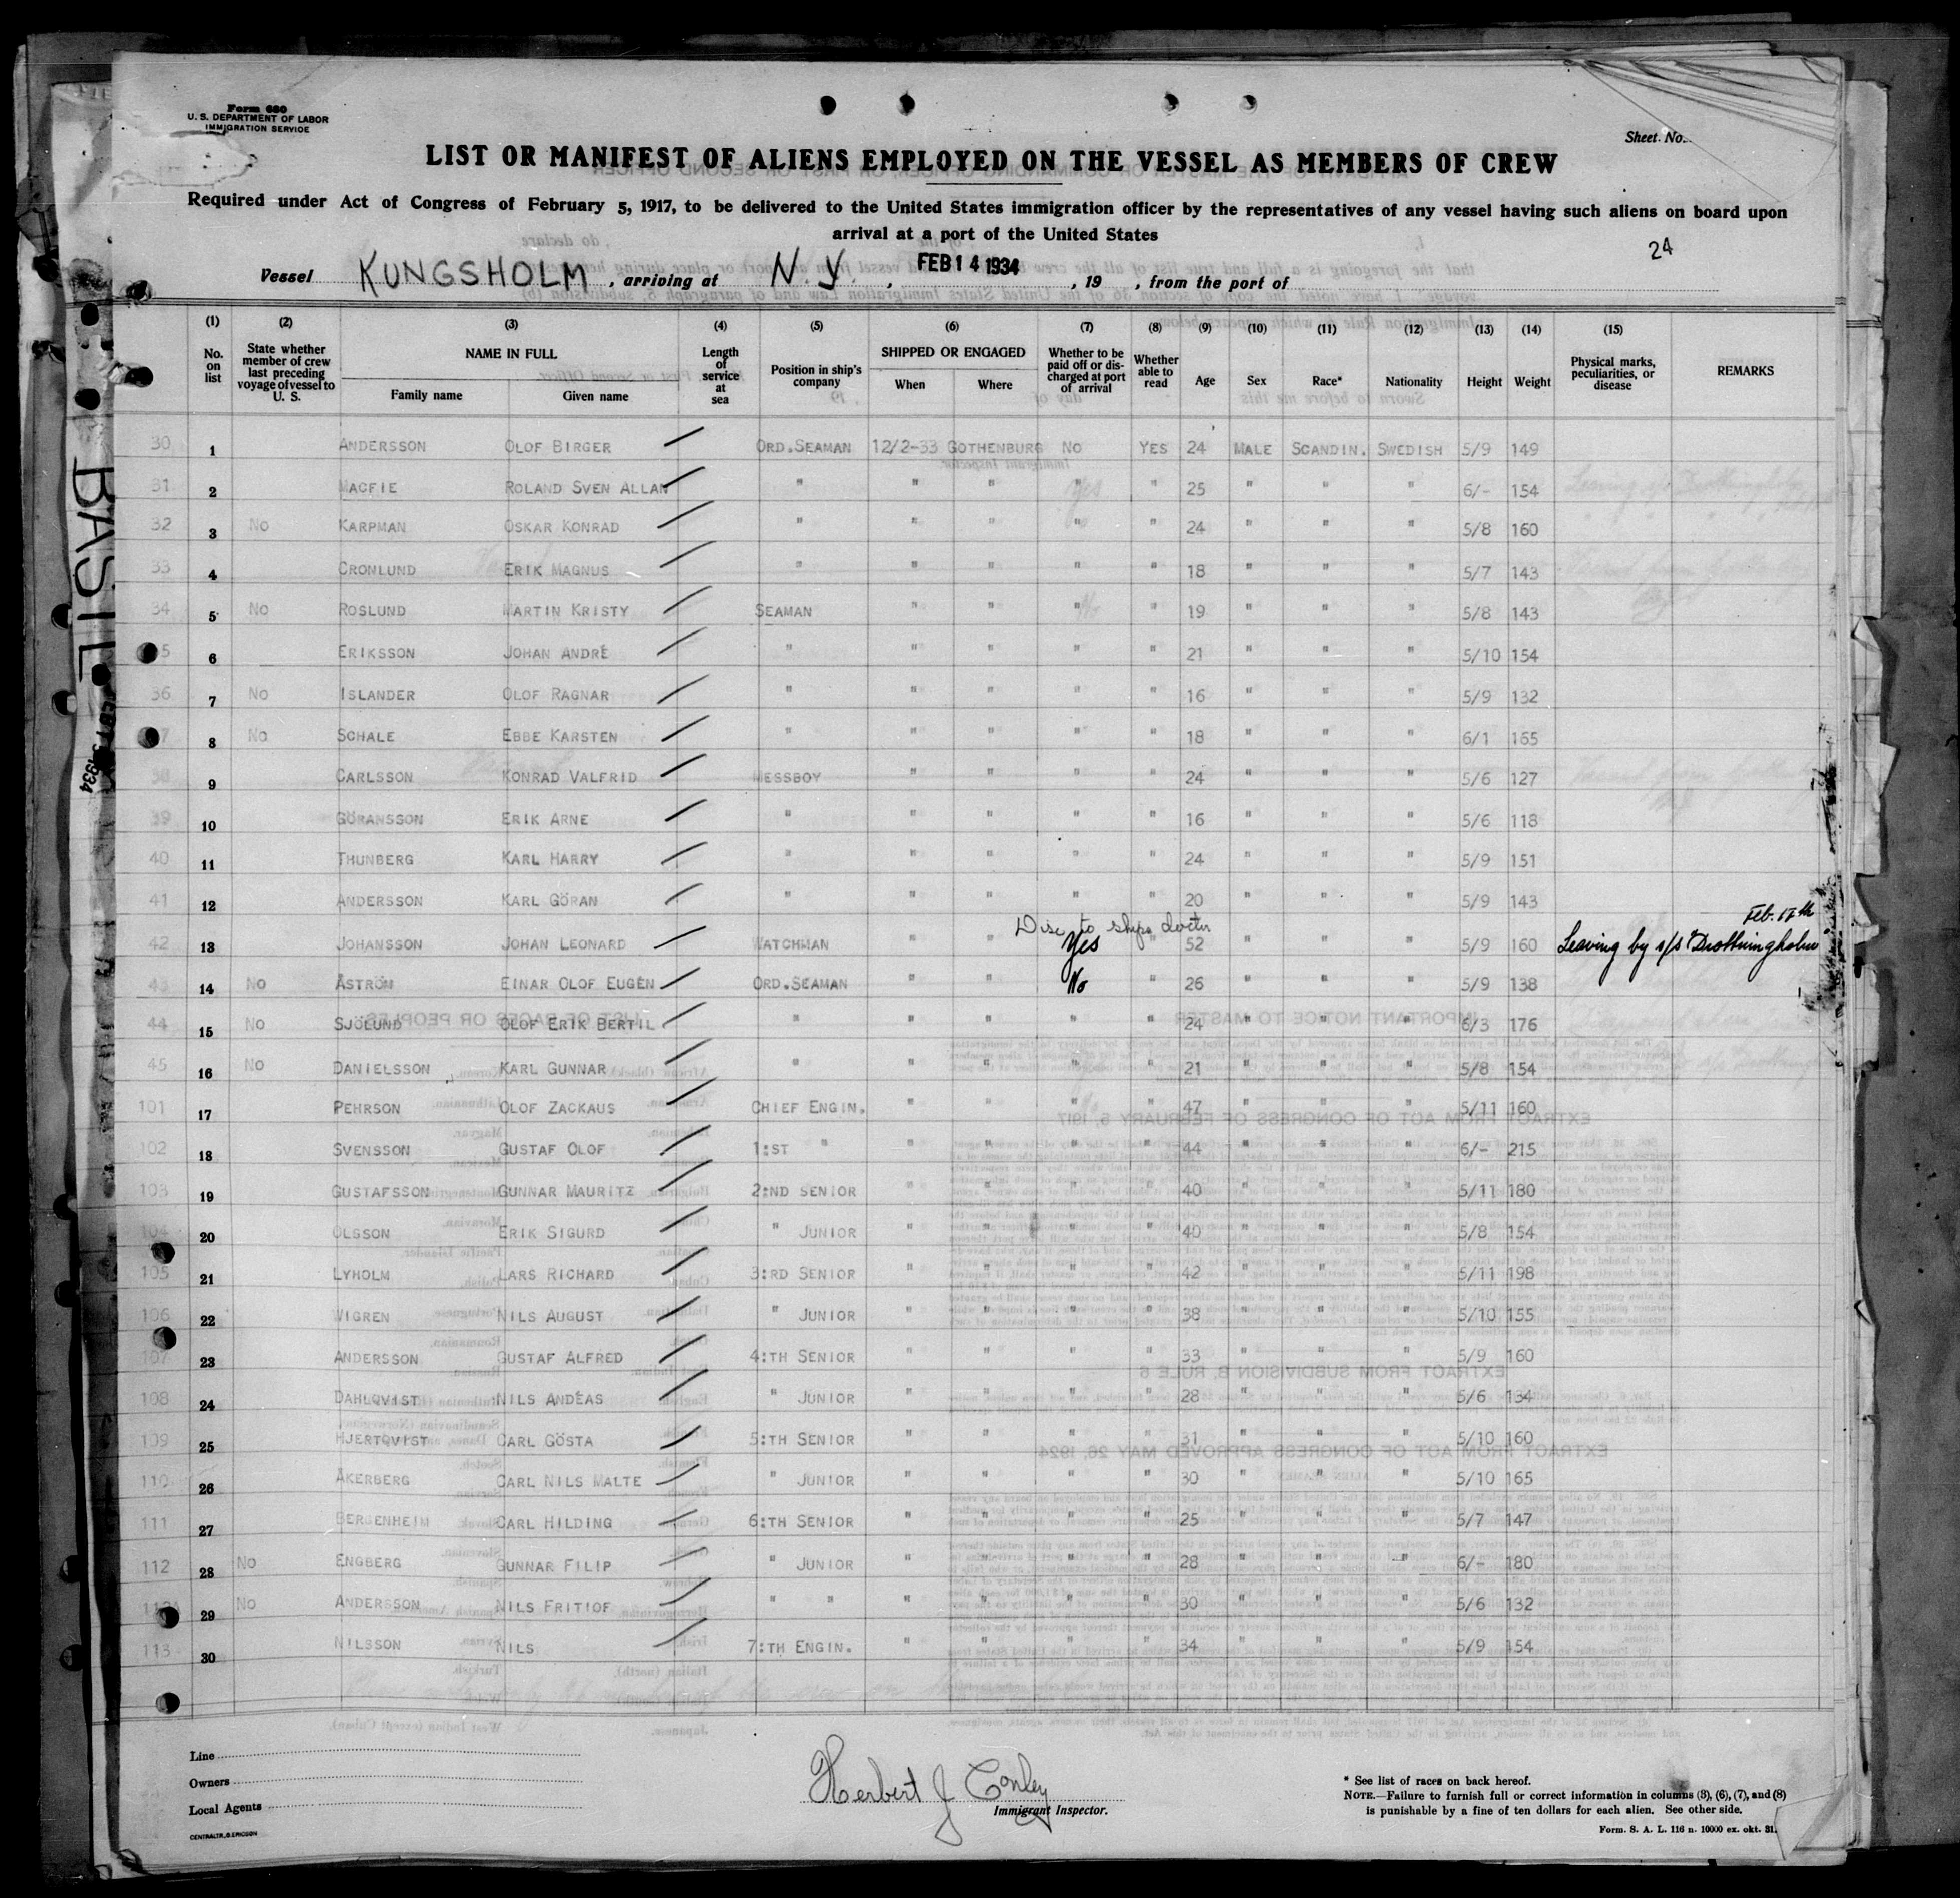 Form 680
U. S. DEPARTMENT OF LABOR
IMMIGRATION SERVICE
Sheet No.
LIST OR MANIFEST OF ALIENS EMPLOYED ON THE VESSEL AS MEMBERS OF CREW
Required under Act of Congress of February 5, 1917, to be delivered to the United States immigration officer by the representatives of any vessel having such aliens on board upon
arrival at a port of the United States
24
Vessel KUNGSHOLM, arriving at N. Y., FEB 14 1934, 19 , from the port of
(1) (2) (3) (4) (5) (6) (7) (8) (9) (10) (11) (12) (13) (14) (15)
No. on list | State whether member of crew last preceding voyage of vessel to U. S. | NAME IN FULL | Family name | Given name | Length of service at sea | Position in ship's company | SHIPPED OR ENGAGED | When | Where | Whether to be paid off or discharged at port of arrival | Whether able to read | Age | Sex | Race* | Nationality | Height | Weight | Physical marks, peculiarities, or disease | REMARKS
30 1 ANDERSSON OLOF BIRGER ORD.SEAMAN 12/2-33 GOTHENBURG NO YES 24 MALE SCANDIN. SWEDISH 5/9 149
31 2 MACFIE ROLAND SVEN ALLAN " " " " 25 " " " 6/- 154
32 3 NO KARPMAN OSKAR KONRAD " " " " " 24 " " " 5/8 160
33 4 CRONLUND ERIK MAGNUS " " " " " 18 " " " 5/7 143
34 5 NO ROSLUND MARTIN KRISTY SEAMAN " " " " 19 " " " 5/8 143
6 ERIKSSON JOHAN ANDRÉ " " " " " 21 " " " 5/10 154
36 7 NO ISLANDER OLOF RAGNAR " " " " " 16 " " " 5/9 132
8 NO SCHALE EBBE KARSTEN " " " " " 18 " " " 6/1 165
38 9 CARLSSON KONRAD VALFRID MESSBOY " " " " 24 " " " 5/6 127
39 10 GÖRANSSON ERIK ARNE " " " " " 16 " " " 5/6 118
40 11 THUNBERG KARL HARRY " " " " " 24 " " " 5/9 151
41 12 ANDERSSON KARL GÖRAN " " " " " 20 " " " 5/9 143
Disc to ships doctor
Feb. 17th
42 13 JOHANSSON JOHAN LEONARD WATCHMAN " " Yes " 52 " " " 5/9 160 Leaving by s/s "Drottningholm
43 14 NO ÅSTRÖM EINAR OLOF EUGÉN ORD.SEAMAN " " No " 26 " " " 5/9 138
44 15 NO SJÖLUND OLOF ERIK BERTIL " " " " " 24 " " " 6/3 176
45 16 NO DANIELSSON KARL GUNNAR " " " " " 21 " " " 5/8 154
101 17 PEHRSON OLOF ZACKAUS CHIEF ENGIN. " " " " 47 " " " 5/11 160
102 18 SVENSSON GUSTAF OLOF 1:ST " " " " " 44 " " " 6/- 215
103 19 GUSTAFSSON GUNNAR MAURITZ 2:ND SENIOR " " " " 40 " " " 5/11 180
104 20 OLSSON ERIK SIGURD " JUNIOR " " " " 40 " " " 5/8 154
105 21 LYHOLM LARS RICHARD 3:RD SENIOR " " " " 42 " " " 5/11 198
106 22 WIGREN NILS AUGUST " JUNIOR " " " " 38 " " " 5/10 155
107 23 ANDERSSON GUSTAF ALFRED 4:TH SENIOR " " " " 33 " " " 5/9 160
108 24 DAHLQVIST NILS ANDÉAS " JUNIOR " " " " 28 " " " 5/6 134
109 25 HJERTQVIST CARL GÖSTA 5:TH SENIOR " " " " 31 " " " 5/10 160
110 26 ÅKERBERG CARL NILS MALTE " JUNIOR " " " " 30 " " " 5/10 165
111 27 BERGENHEIM CARL HILDING 6:TH SENIOR " " " " 25 " " " 5/7 147
112 28 NO ENGBERG GUNNAR FILIP " JUNIOR " " " " 28 " " " 6/- 180
29 NO ANDERSSON NILS FRITIOF " " " " " " 30 " " " 5/6 132
113 30 NILSSON NILS 7:TH ENGIN. " " " " 34 " " " 5/9 154
Line
Owners
Local Agents
CENTRALTR, G. ERICSON
Herbert J Conley
Immigrant Inspector.
* See list of races on back hereof.
NOTE.—Failure to furnish full or correct information in columns (3), (6), (7), and (8)
is punishable by a fine of ten dollars for each alien. See other side.
Form. S. A. L. 116 n. 10000 ex. okt. 31.
BASIL